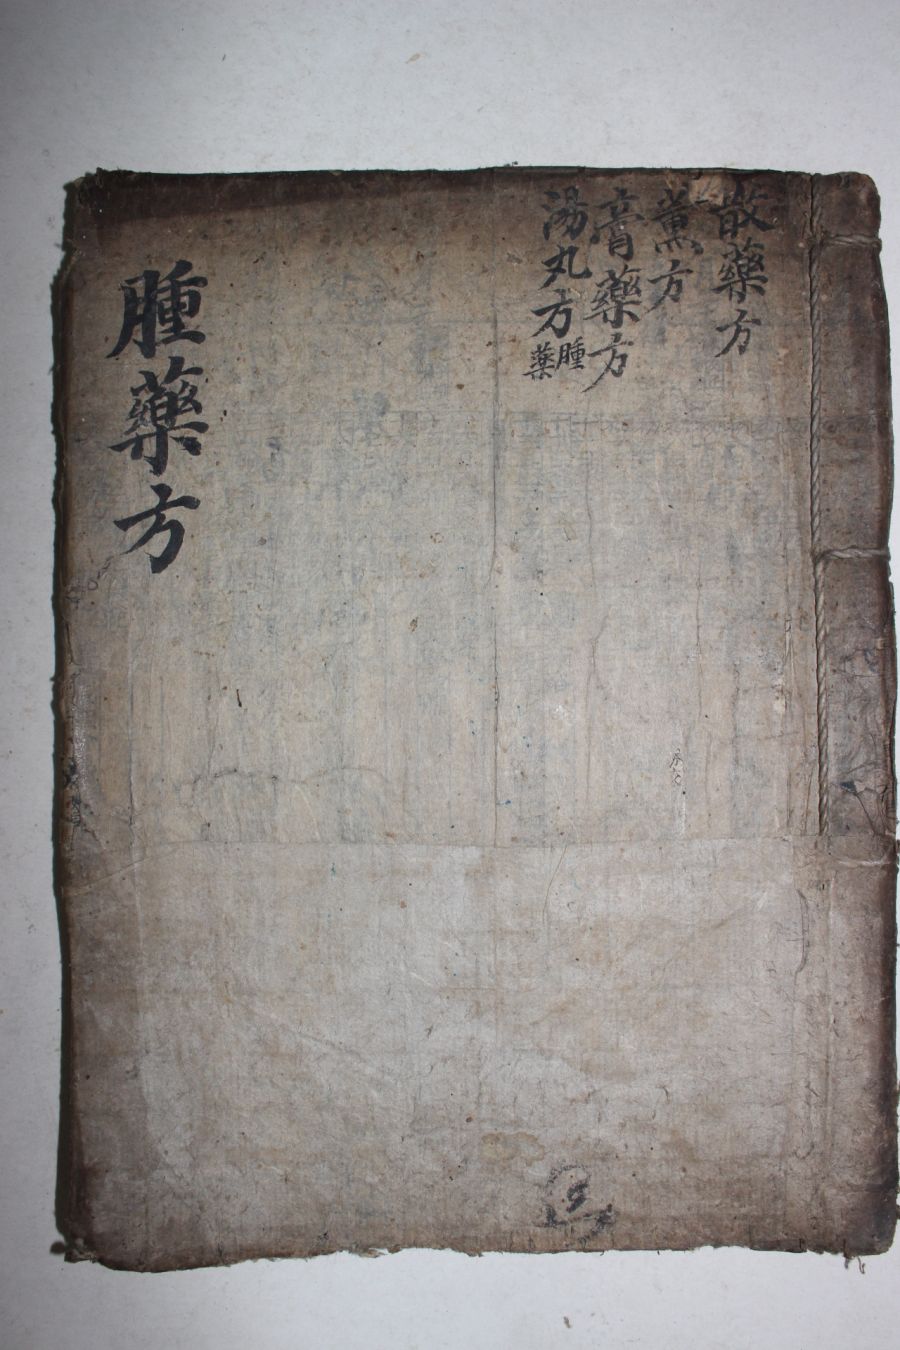 散藥方
薰方
膏藥方
湯丸方腫藥
腫藥方